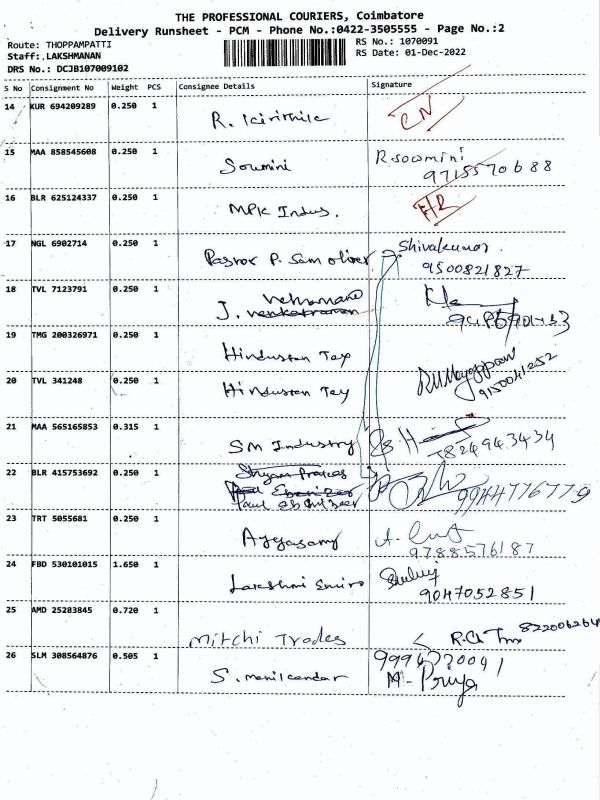 THE PROFESSIONAL COURIERS, Coimbatore
Delivery Runsheet - PCM - Phone No.:0422-3505555 - Page No.:2
Route: THOPPAMPATTI RS No.: 1070091
Staff:,LAKSHMANAN RS Date: 01-Dec-2022
DRS No.: DCJB107009102
S No Consignment No Weight PCS Consignee Details Signature
14 KUR 694209289 0.250 1 R. CN
15 MAA 858545608 0.250 1 Soumini R.soumini
9715570688
16 BLR 625124337 0.250 1 MPK Indus.
17 NGL 6902714 0.250 1 Pastor P. Sam oliver Shivakumar.
9500821827
18 TVL 7123791 0.250 1 J.
19 TMG 200326971 0.250 1 Hindustan Tex
20 TVL 341248 0.250 1 Hindustan Tex
9150041252
21 MAA 565165853 0.315 1 SM Industry
7824943434
22 BLR 415753692 0.250 1 Paul
9944776779
23 TRT 5055681 0.250 1 Ayyasamy
9788576187
24 FBD 530101015 1.650 1 Lakshmi
9047052851
25 AMD 25283845 0.720 1 Mitchi Trades
26 SLM 308564876 0.505 1 S. manikandar M. Priya